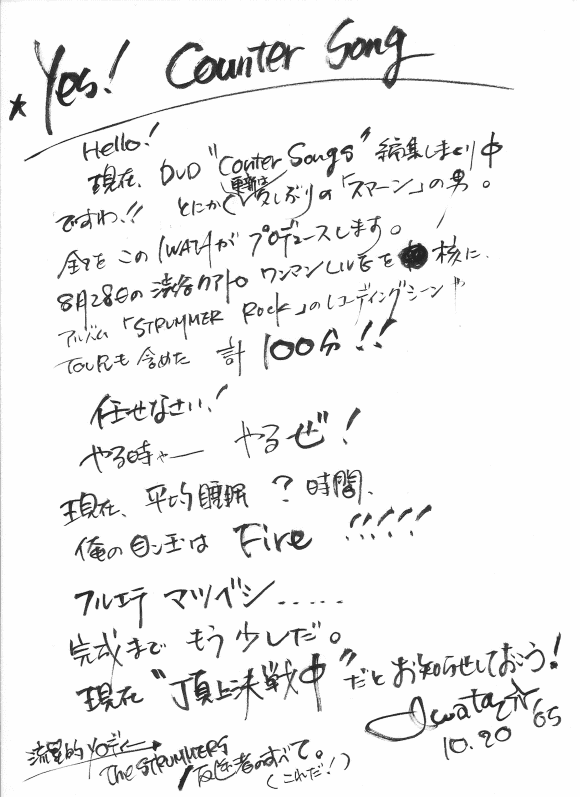 ★Yes! Counter Song
Hello!
現在、DVD "Conter Songs" 編集しまくり中
ですわ!! とにかく(更新は)久しぶりの「スマーン」の男。
全てをこのIWATAがプロデュースします。
8月28日の渋谷クアトロ ワンマンLIVEを 核に、
アルバム「STRUMMER Rock」のレコーディングシーンや
TOURも含めた 計 100分!!
任せなさい!
やる時ゃー やるぜ!
現在、平均睡眠 ? 時間、
俺の目ン玉は Fire !!!!!
フルエテ マツベシ.....
完成まで もう少しだ。
現在 "頂上決戦中" だとお知らせしておこう!
Iwata ☆ '05
10.20
流星的 メロディー
The STRUMMERS
反逆者のすべて。
(これだ!)